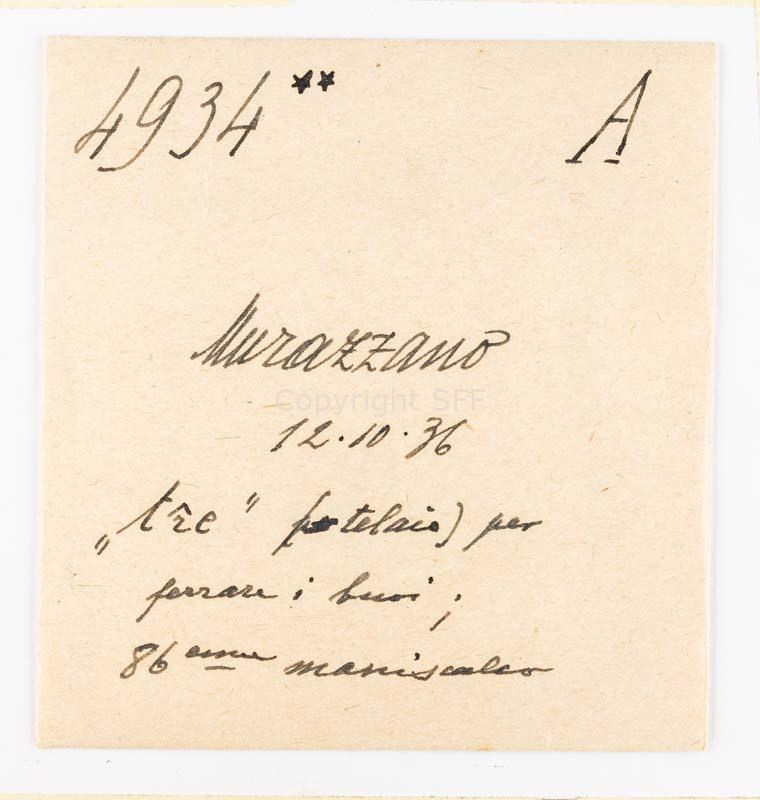 4934** A
Murazzano
Copyright SFF
12.10.36
„tre" (telaio) per
ferrare i buoi;
86 enne maniscalco